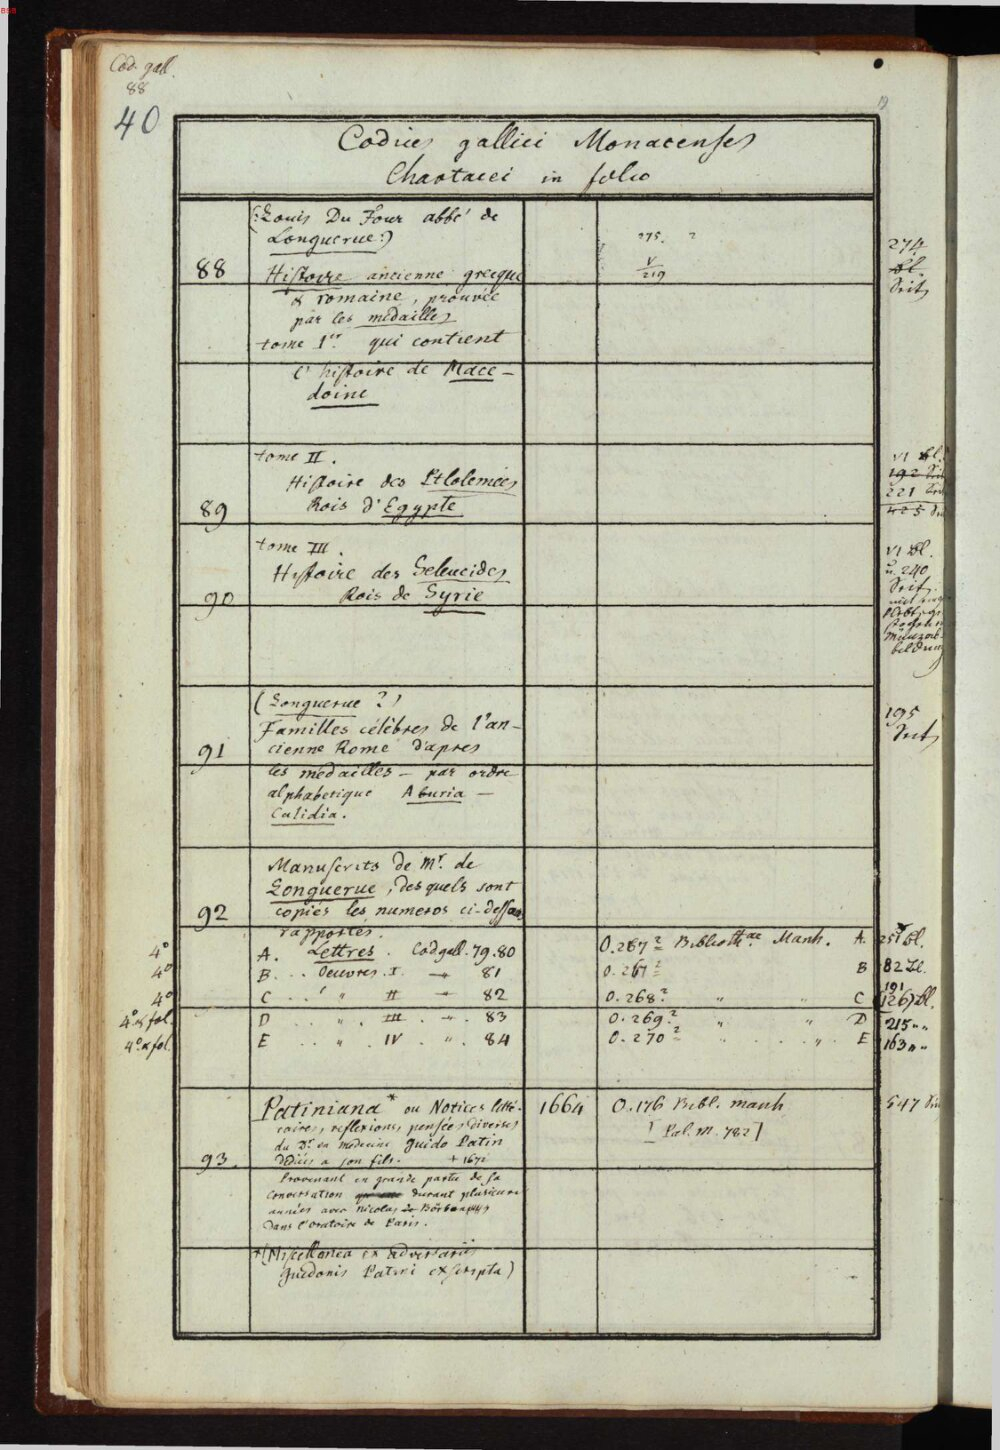 BSB
Cod. gall.
88
40
Codices gallici Monacenses
Chartacei in folio
(:Louis Du Four abbé de
Longuerue:)
275. ?
V
219
274
Bl.
Seit
88 Histoire ancienne grecque
& romaine, prouvée
par les medailles
tome 1er qui contient
l'histoire de Mace-
doine
tome II.
Histoire des Ptolemées
89 Rois d'Egypte
VI Bl.
192 Seit
221 Seit
425
tome III.
Histoire des Seleucides
90 Rois de Syrie
VI Bl.
u. 240
Seit.
Münzab-
bildung
(Longuerue ?)
Familles célèbres de l'an-
91 cienne Rome d'apres
les medailles – par ordre
alphabetique Aburia –
Calidia.
195
Seit
Manuscrits de Mr. de
Longuerue, des quels sont
92 copiés les numeros ci-dessus
rapportés.
4° A. Lettres. Cod gall. 79.80 O.267 ? Bibliothae Manh. A. 251 Bl.
4° B... Oeuvres. I. – 81 O.267 ? B 82 Bl.
191
4° C .. ' " II – 82 O.268 ? " " C (126) Bl.
4° & fol. D .. " . III . – . 83 O.269 ? " " D 215 " "
4° & fol. E .. " . IV . " . 84 O.270 ? " .. " . E 163 " "
Patiniana* ou Notices litté- 1664 O.176 Bibl. manh 547 Seit
raires, reflexions, pensées diverses [Pal. M. 782]
du Dr. en medecine Guido Patin
93. dediées a son fils. + 1672
Provenant en grande partie de sa
conversation durant plusieurs
années avec Nicolas
dans l'oratoire de Paris.
*(Miscellanea ex adversariis
Guidonis Patini exscripta)